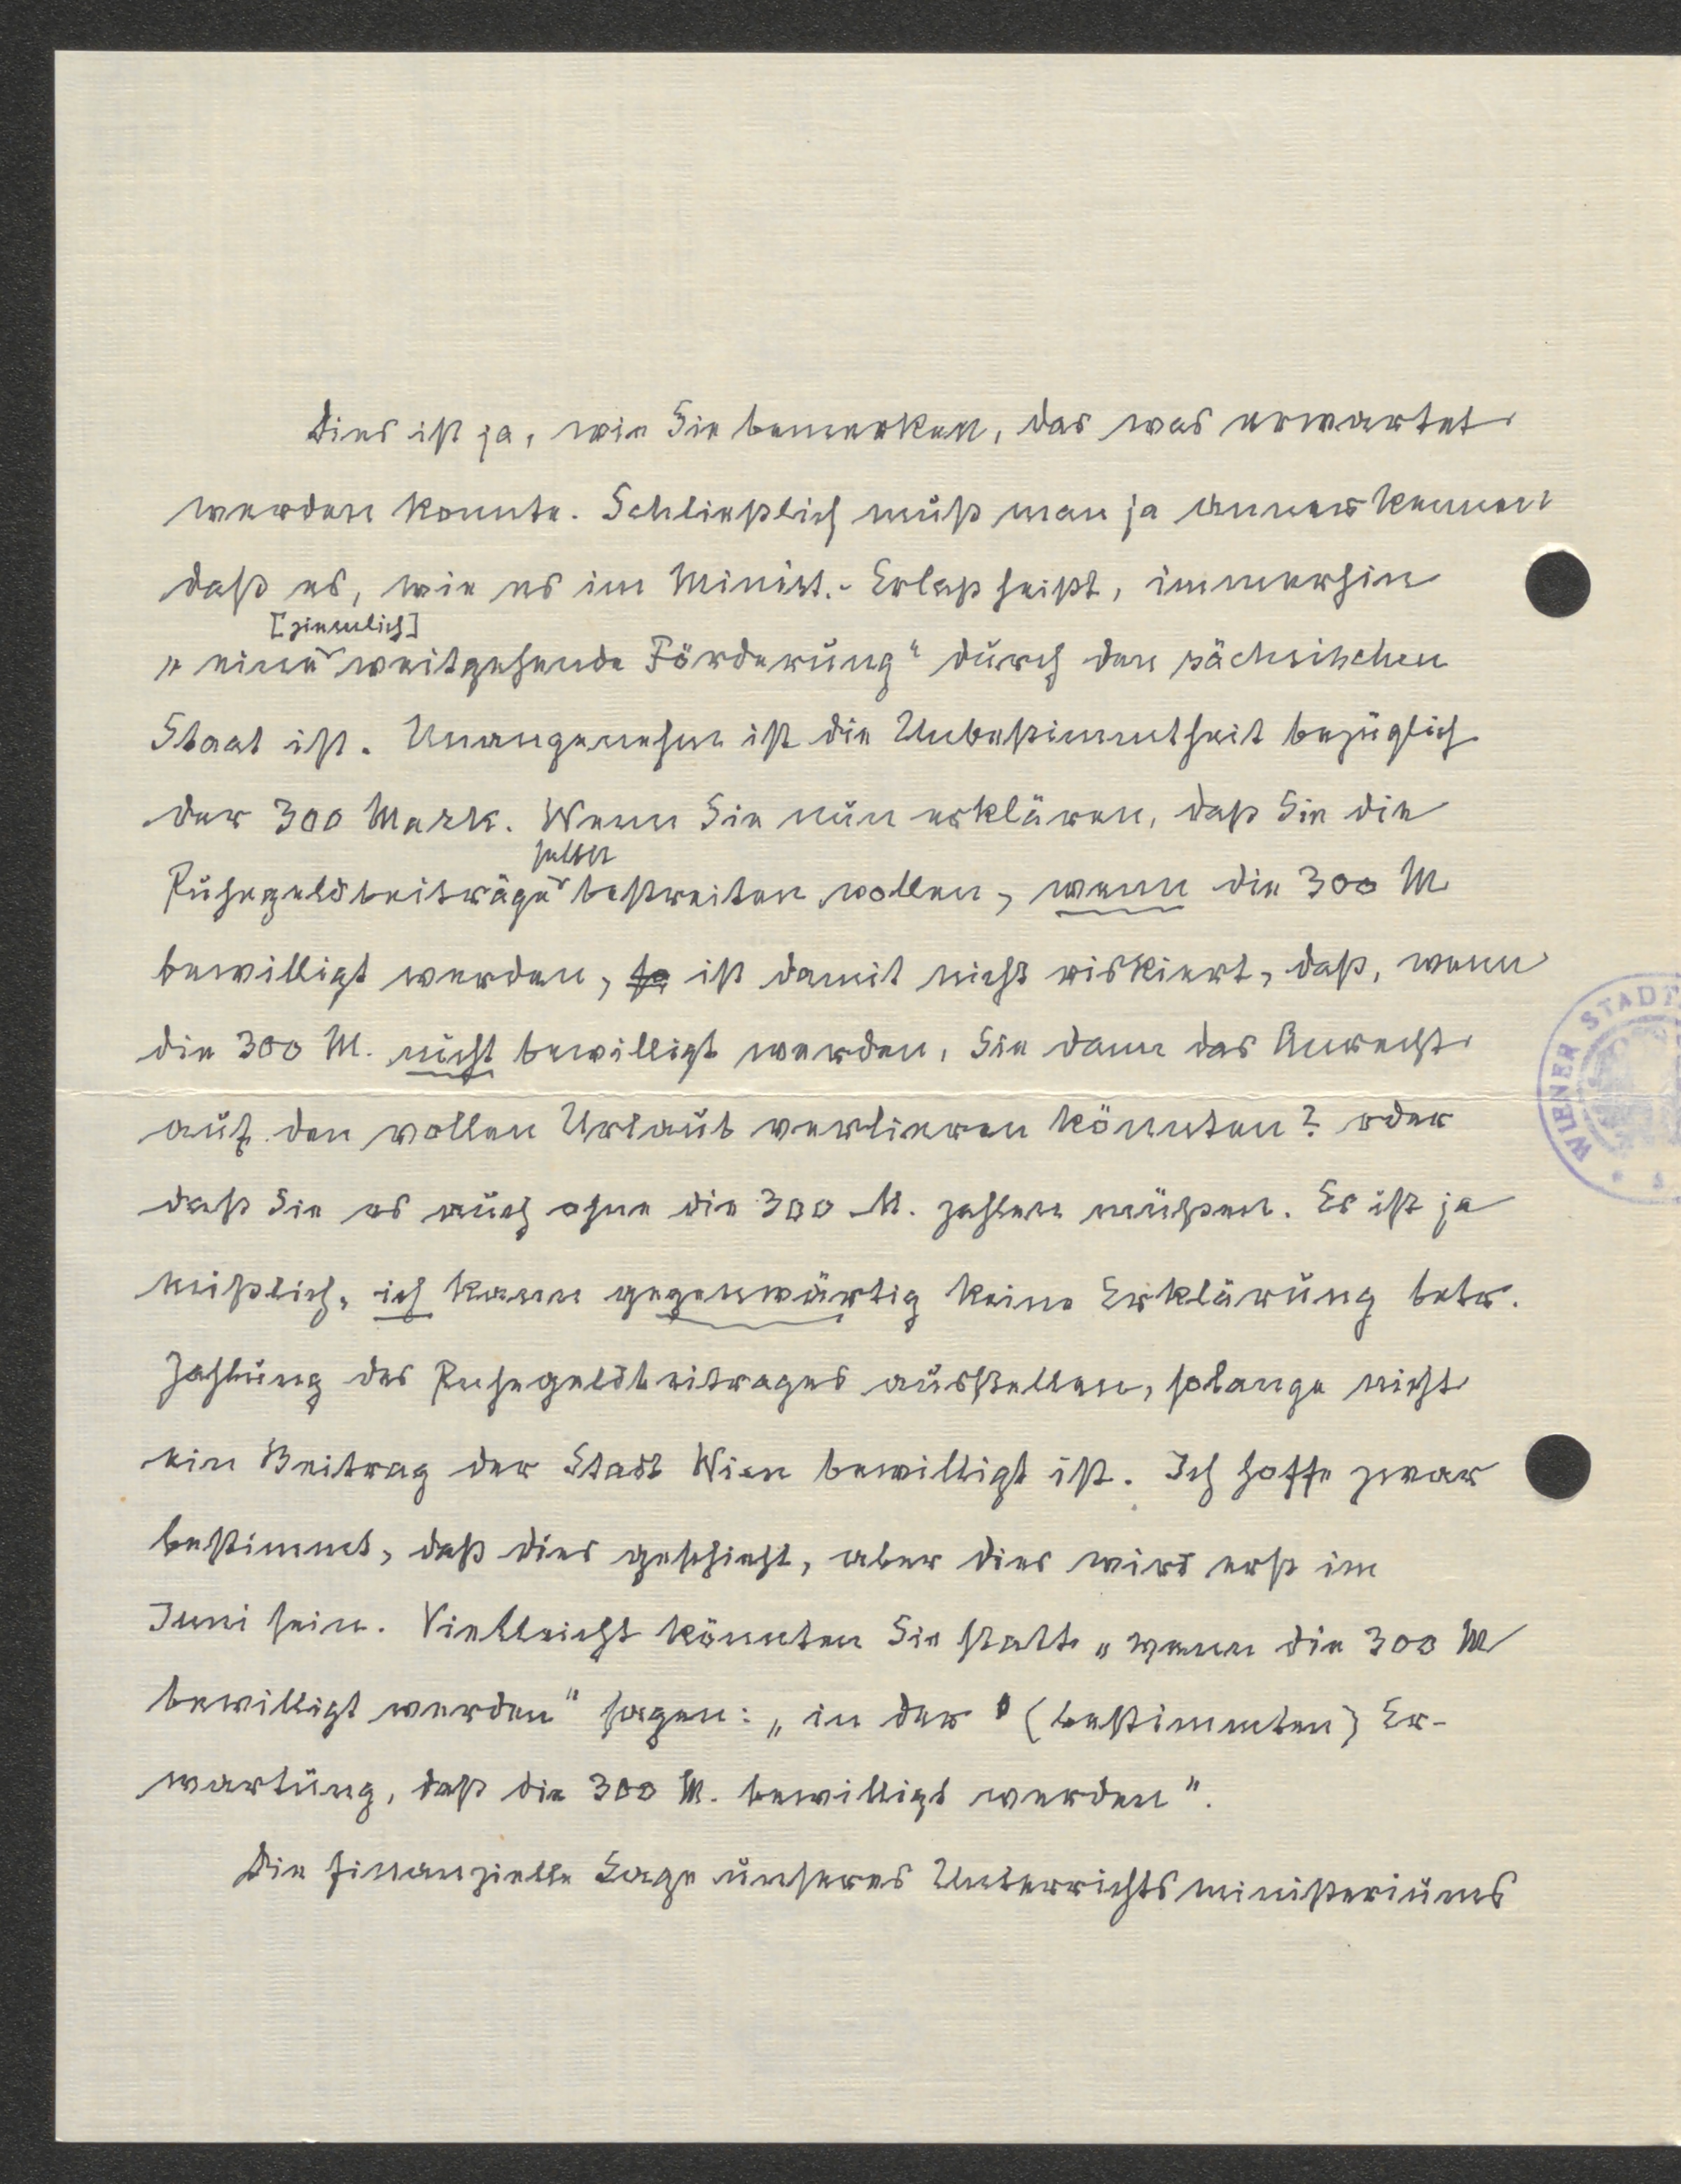 Dies ist ja, wie Sie bemerken, das was erwartet
werden konnte. Schließlich muß man ja anerkennen
daß es, wie es im Minist.-Erlaß heißt, immerhin
[ziemlich]
„eine weitgehende Förderung“ durch den sächsischen
Staat ist. Unangenehm ist die Unbestimmtheit bezüglich
der 300 Mark. Wenn Sie nun erklären, daß Sie die
selber
Ruhegeldbeiträge bestreiten wollen, wenn die 300 M
bewilligt werden, so ist damit nicht riskiert, daß, wenn
die 300 M. nicht bewilligt werden, Sie dann das Anrecht
auf den vollen Urlaub verlieren könnten? oder
daß Sie es auch ohne die 300 M. zahlen müßen. Es ist ja
mißlich, ich kann gegenwärtig keine Erklärung betr.
Zahlung des Ruhegeldbeitrages ausstellen, solange nicht
ein Beitrag der Stadt Wien bewilligt ist. Ich hoffe zwar
bestimmt, daß dies geschieht, aber dies wird erst im
Juni sein. Vielleicht könnten Sie statt „wenn die 300 M
bewilligt werden“ sagen: „in der (bestimmten) Er-
wartung, daß die 300 M. bewilligt werden“.
Die finanzielle Lage unseres Unterrichtsministeriums
WIENER STADT